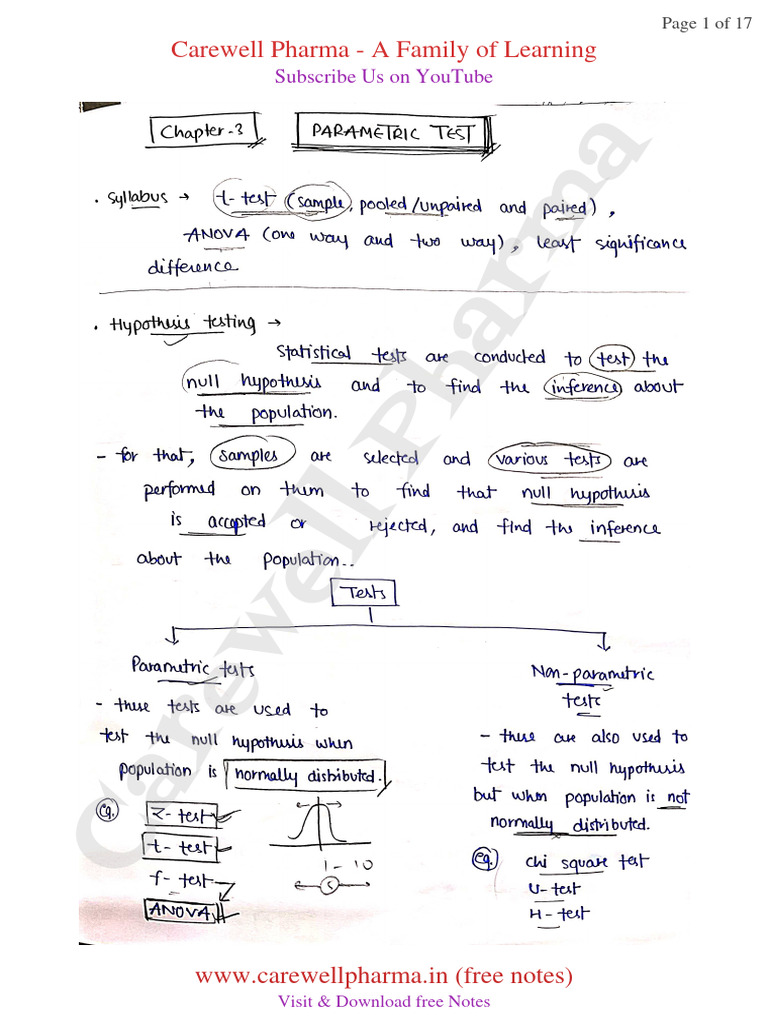 Page 1 of 17
Carewell Pharma - A Family of Learning
Subscribe Us on YouTube
Chapter-3 PARAMETRIC TEST
. Syllabus → t-test (sample, pooled/unpaired and paired),
ANOVA (one way and two way), least significance
difference
. Hypothesis testing →
Statistical tests are conducted to test the
null hypothesis and to find the inference about
the population.
- for that, samples are selected and various tests are
performed on them to find that null hypothesis
is accepted or rejected, and find the inference
about the population..
Tests
Parametric tests
- these tests are used to
test the null hypothesis when
population is normally distributed.
eg. Z-test
t-test
f-test
ANOVA
1-10
S
Non-parametric
tests
- these are also used to
test the null hypothesis
but when population is not
normally distributed.
eg. chi square test
U-test
H-test
Carewell Pharma
www.carewellpharma.in (free notes)
Visit & Download free Notes